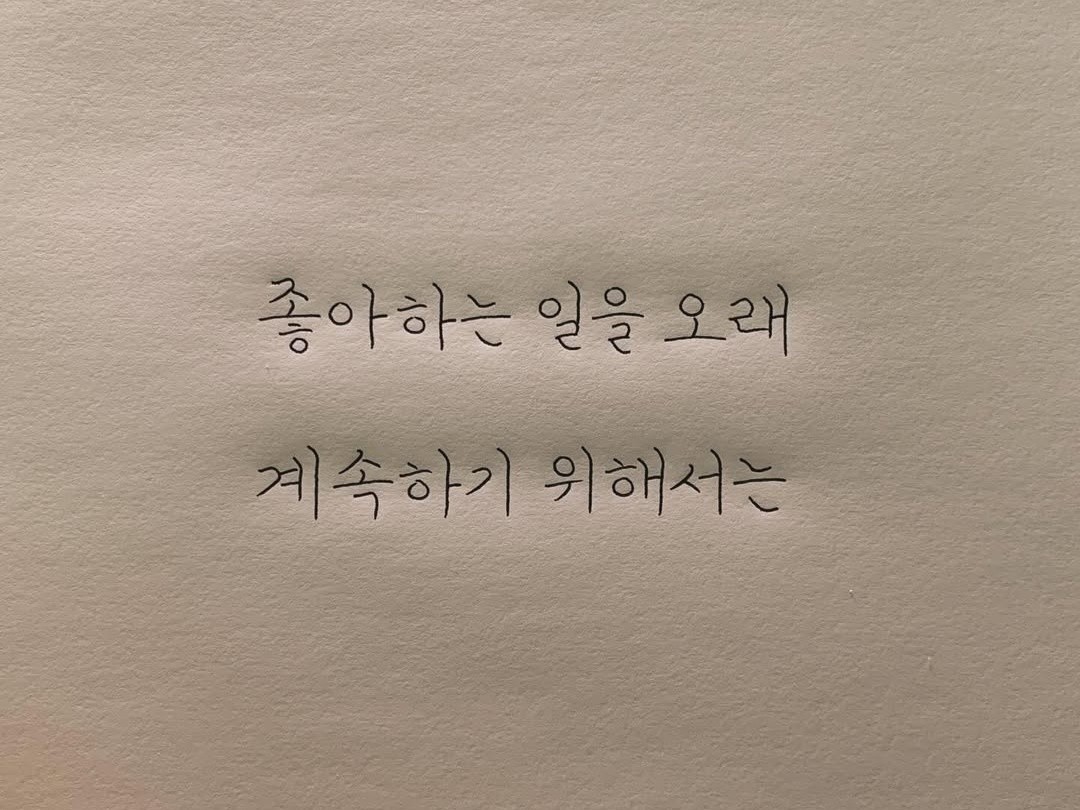 좋아하는 일을 오래
계속하기 위해서는